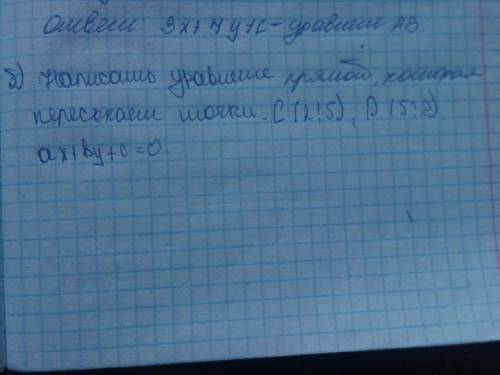 Ответ: 3x + 4y + c - уравнение AB.
б) Написать уравнение прямой, которая
пересекает точки. C (2; 5), D (5; 2)
ax + by + c = 0.